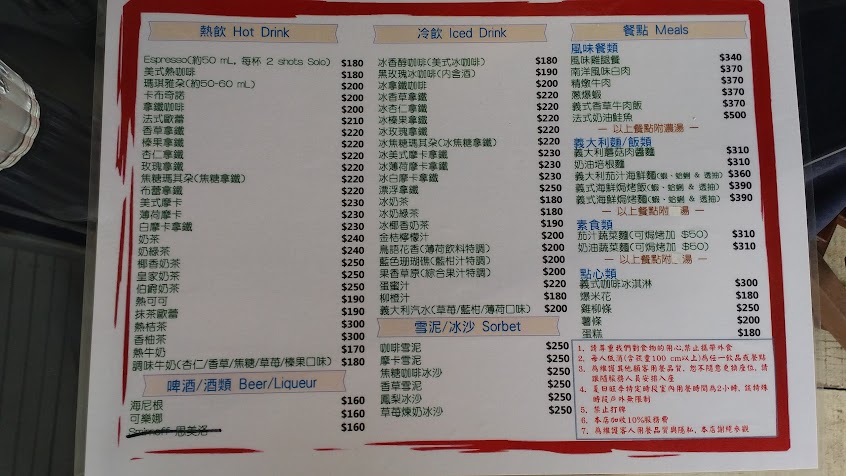 熱飲 Hot Drink
Espresso(約50 mL, 每杯 2 shots Solo) $180
美式熱咖啡 $180
瑪琪雅朵(約50-60 mL) $200
卡布奇諾 $200
拿鐵咖啡 $200
法式歐蕾 $210
香草拿鐵 $220
榛果拿鐵 $220
杏仁拿鐵 $220
玫瑰拿鐵 $220
焦糖瑪其朵(焦糖拿鐵) $220
布蕾拿鐵 $220
美式摩卡 $230
薄荷摩卡 $230
白摩卡拿鐵 $230
奶茶 $240
奶綠茶 $240
椰香奶茶 $250
皇家奶茶 $250
伯爵奶茶 $250
熱可可 $190
抹茶歐蕾 $190
熱桔茶 $300
香柚茶 $300
熱牛奶 $170
調味牛奶(杏仁/香草/焦糖/草莓/榛果口味) $180
啤酒/酒類 Beer/Liqueur
海尼根 $160
可樂娜 $160
Smirnoff 思美洛 $160
冷飲 Iced Drink
冰香醇咖啡(美式冰咖啡) $180
黑玫瑰冰咖啡(內含酒) $190
冰拿鐵咖啡 $200
冰香草拿鐵 $220
冰杏仁拿鐵 $220
冰榛果拿鐵 $220
冰玫瑰拿鐵 $220
冰焦糖瑪其朵(冰焦糖拿鐵) $220
冰美式摩卡拿鐵 $230
冰薄荷摩卡拿鐵 $230
冰白摩卡拿鐵 $230
漂浮拿鐵 $250
冰奶茶 $180
冰奶綠茶 $180
冰椰香奶茶 $190
金桔檸檬汁 $200
鳥語花香(薄荷飲料特調) $200
藍色珊瑚礁(藍柑汁特調) $200
果香草原(綜合果汁特調) $200
蛋蜜汁 $220
柳橙汁 $180
義大利汽水(草莓/藍柑/薄荷口味) $200
雪泥/冰沙 Sorbet
咖啡雪泥 $250
摩卡雪泥 $250
焦糖咖啡冰沙 $250
香草雪泥 $250
鳳梨冰沙 $250
草莓煉奶冰沙 $250
餐點 Meals
風味餐類
風味雞腿餐 $340
南洋風味白肉 $370
精燉牛肉 $370
蔥爆蝦 $370
義式香草牛肉飯 $370
法式奶油鮭魚 $500
一 以上餐點附濃湯 一
義大利麵/飯類
義大利蘑菇肉醬麵 $310
奶油培根麵 $310
義大利茄汁海鮮麵(蝦、蛤蜊 & 透抽) $360
義式海鮮焗烤飯(蝦、蛤蜊 & 透抽) $390
義式海鮮焗烤麵(蝦、蛤蜊 & 透抽) $390
一 以上餐點附 湯 一
素食類
茄汁蔬菜麵(可焗烤加 $50) $310
奶油蔬菜麵(可焗烤加 $50) $310
一 以上餐點附 湯 一
點心類
義式咖啡冰淇淋 $300
爆米花 $180
雞柳條 $250
薯條 $200
蛋糕 $180
1、請尊重我們對食物的用心,禁止攜帶外食
2、每人低消(含孩童100 cm以上)為任一飲品或餐點
3、為維護其他顧客用餐品質, 恕不隨意更換座位, 請
跟隨服務人員安排入座
4、夏日旺季特定時段室內用餐時間為2小時, 該特殊
時段戶外無限制
5、禁止打牌
6、本店加收10%服務費
7、為維護客人用餐品質與隱私, 本店謝絕參觀